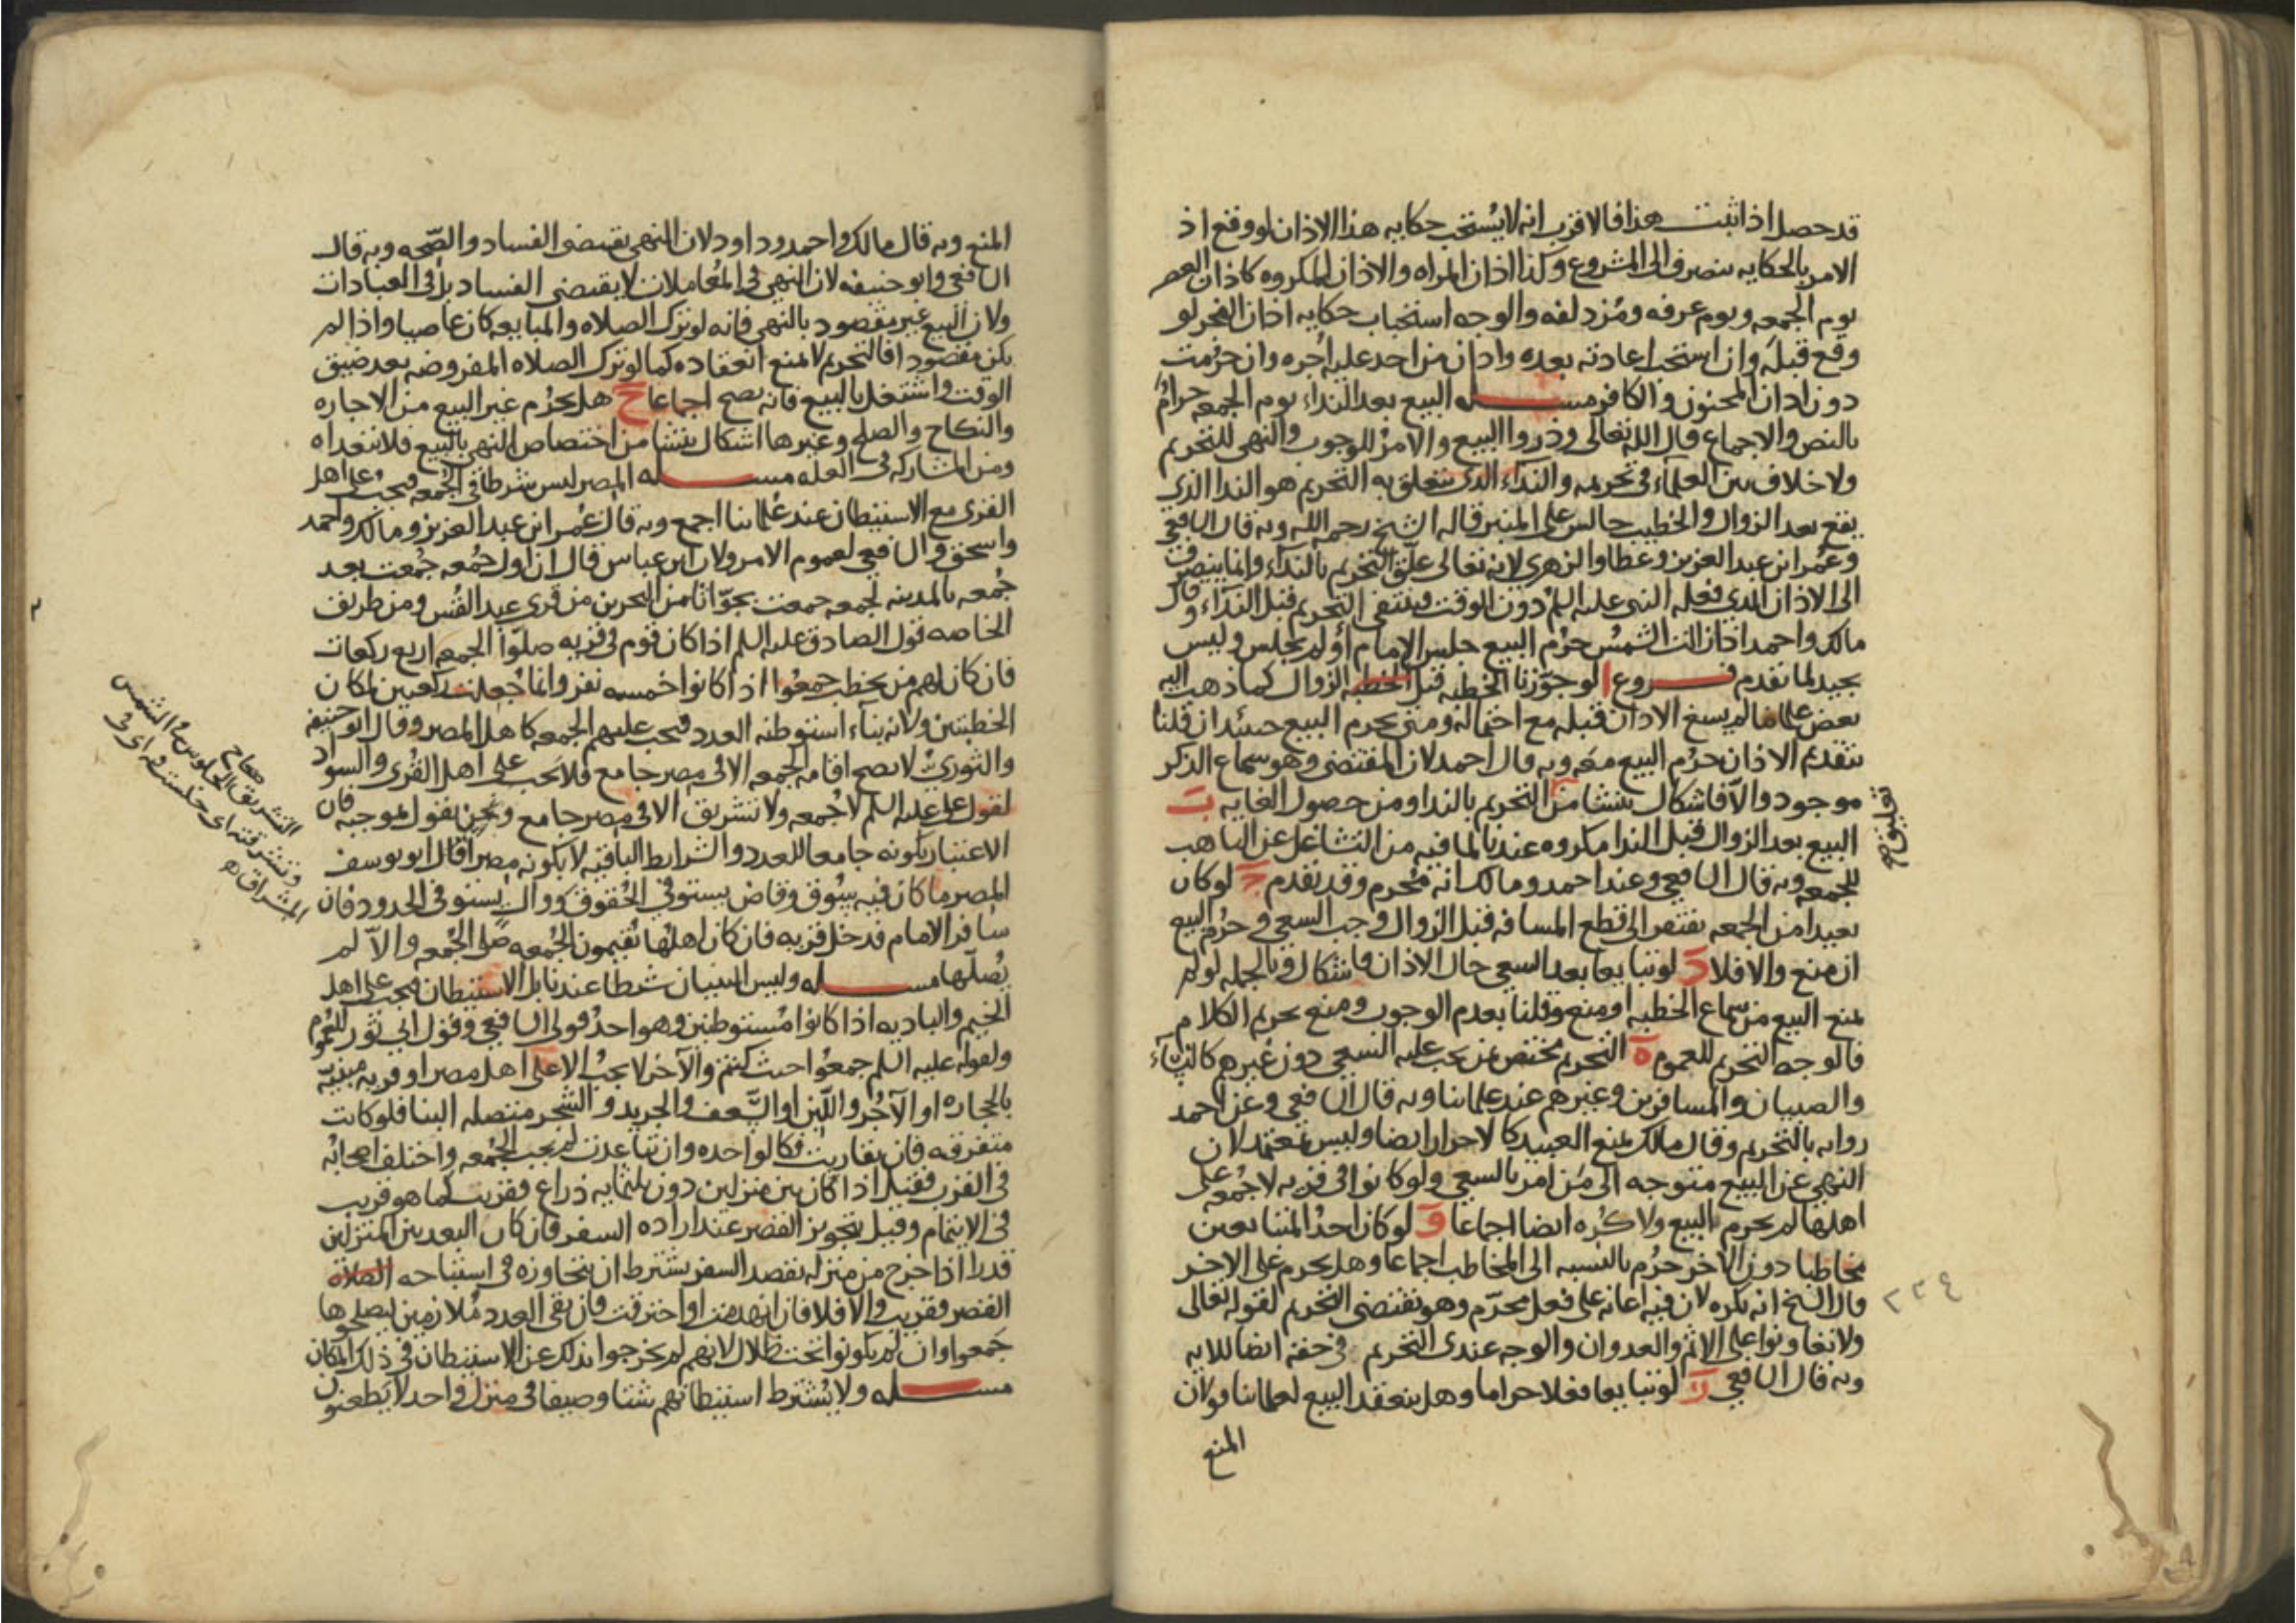 قد حصل اذا ثبت هذا فالاقرب انه لا يستحب حكايه هذا الاذان لو وقع اذ
الامر بالحكايه ينصرف الى المشروع وكذا اذان المراه والاذان المكروه كاذان العصر
يوم الجمعه ويوم عرفه ومزدلفه والوجه استحباب حكايه اذان الفجر لو
وقع قبله وان استحب اعادته بعده واذان من اخذ عليه اجره وان حرمت
دون اذان المجنون والكافر مسله البيع بعد النداء يوم الجمعه حرام
بالنص والاجماع قال الله تعالى وذروا البيع والامر للوجوب والنهى للتحريم
ولا خلاف بين العلماء فى تحريمه والنداء الذى يتعلق به التحريم هو الندا الذى
يقع بعد الزوال والخطيب جالس على المنبر قاله الشيخ رحمه الله وبه قال الشافعى
وعمر ابن عبد العزيز وعطا والزهرى لانه تعالى علق التحريم بالنداء وانما ينصرف
الى الاذان الذى فعله النبى عليه السلم دون الوقت وينتفى التحريم قبل النداء وقال
مالك واحمد اذا زالت الشمس حرم البيع جلس الامام او لم يجلس وليس
بجيد لما تقدم فروع ا لو جوزنا الخطبه قبل الخطبه الزوال كما ذهب اليه
بعض علمائنا لم يسغ الاذان قبله مع احتماله ومتى يحرم البيع حينئذ ان قلنا
بتقديم الاذان حرم البيع معه وبه قال احمد لان المقتضى وهو سماع الذكر
موجود والا فاشكال ينشا من التحريم بالندا ومن حصول الغايه ب
البيع بعد الزوال قبل الندا مكروه عندنا لما فيه من التشاغل عن التاهب
للجمعه وبه قال الشافعى وعند احمد ومالك انه محرم وقد تقدم ج لو كان
بعيدا من الجمعه يفتقر الى قطع المسافه قبل الزوال وجب السعى وحرم البيع
ان منع والا فلا د لو تبايعا بعد السعى حال الاذان فاشكال وبالجمله لو لم
يمنع البيع من سماع الخطبه او منع وقلنا بعدم الوجوب ومنع تحريم الكلام
فالوجه التحريم للعموم ه التحريم مختص بمن يجب عليه السعى دون غيرهم كالنساء
والصبيان والمسافرين وغيرهم عند علمائنا وبه قال الشافعى وعن احمد
روايه بالتحريم وقال مالك يمنع العبيد كالاحرار ايضا وليس بمعتمد لان
النهى عن البيع متوجه الى من امر بالسعى ولو كانوا فى قريه لا جمعه على
اهلها لم يحرم البيع ولا كره ايضا اجماعا و لو كان احد المتبايعين
مخاطبا دون الاخر حرم بالنسبه الى المخاطب اجماعا وهل يحرم على الاخر
قال الشيخ انه يكره لان فيه اعانه على فعل محرم وهو يقتضى التحريم لقوله تعالى
ولا تعاونوا على الاثم والعدوان والوجه عندى التحريم فى حقه ايضا للايه
وبه قال الشافعى ز لو تبايعا فعلا حراما وهل ينعقد البيع لعلمائنا قولان
المنع
٢٣٤
المنع وبه قال مالك واحمد وداود لان النهى يقتضى الفساد والصحه وبه قال
الشافعى وابو حنيفه لان النهى فى المعاملات لا يقتضى الفساد بل فى العبادات
ولان البيع غير مقصود بالنهى فانه لو ترك الصلاه والمبايعه كان عاصيا واذا لم
يكن مقصودا فالتحريم لا يمنع انعقاده كما لو ترك الصلاه المفروضه بعد ضيق
الوقت واشتغل بالبيع فانه يصح اجماعا ح هل يحرم غير البيع من الاجاره
والنكاح والصلح وغيرها اشكال ينشا من اختصاص النهى بالبيع فلا يتعداه
ومن المشاركه فى العله مسله المصر ليس شرطا فى الجمعه فيجب على اهل
القرى مع الاستيطان عند علمائنا اجمع وبه قال عمر ابن عبد العزيز ومالك واحمد
واسحق والشافعى لعموم الامر ولان ابن عباس قال ان اول جمعه جمعت بعد
جمعه بالمدينه لجمعه جمعت بجواثا من البحرين من قرى عبد القيس ومن طريق
الخاصه قول الصادق عليه السلم اذا كان قوم فى قريه صلوا الجمعه اربع ركعات
فان كان لهم من يخطب جمعوا اذا كانوا خمسه نفر وانما جعلت ركعتين لمكان
الخطبتين ولانه بناء استوطنه العدد فيجب عليهم الجمعه كاهل المصر وقال ابو حنيفه
والثورى لا يصح اقامه الجمعه الا فى مصر جامع فلا يجب على اهل القرى والسواد
لقول على عليه السلم لا جمعه ولا تشريق الا فى مصر جامع ونحن نقول بموجبه فان
الاعتبار بكونه جامعا للعدد والشرايط الباقيه لا بكونه مصرا قال ابو يوسف
المصر ما كان فيه سوق وقاض يستوفى الحقوق ووال يستوفى الحدود فان
سافر الامام فدخل قريه فان كان اهلها يقيمون الجمعه صلى الجمعه والا لم
يصلها مسله وليس البنيان شرطا عندنا بل الاستيطان فيجب على اهل
الخيم والباديه اذا كانوا مستوطنين وهو احد قولى الشافعى وقول ابى ثور للعموم
ولقوله عليه السلم جمعوا حيث كنتم والآخر لا يجب الا على اهل مصر او قريه مبنيه
بالحجاره او الآجر واللبن او السعف والجريد والشجر متصله البنا فلو كانت
متفرقه فان تقاربت فكالواحده وان تباعدت لم يجب الجمعه واختلف اصحابه
فى القرب فقيل اذا كان بين منزلين دون ثلثمايه ذراع فقريب كما هو قريب
فى الايتمام وقيل بتجويز القصر عند اراده السفر فان كان البعد بين المنزلين
قدرا اذا خرج من منزله بقصد السفر يشترط ان يتجاوزه فى استباحه الصلاة
القصر فقريب والا فلا فان انهدمت او احترقت فان بقى العدد ملازمين ليصلحوها
جمعوا وان لم يكونوا تحت ظلال لانهم لم يخرجوا بذلك عن الاستيطان فى ذلك المكان
مسله ولا يشترط استيطانهم شتا وصيفا فى منزل واحد لا يظعنون
صحاح
التشريق الجلوس الشمس
وتشرقت اى جلست فيه